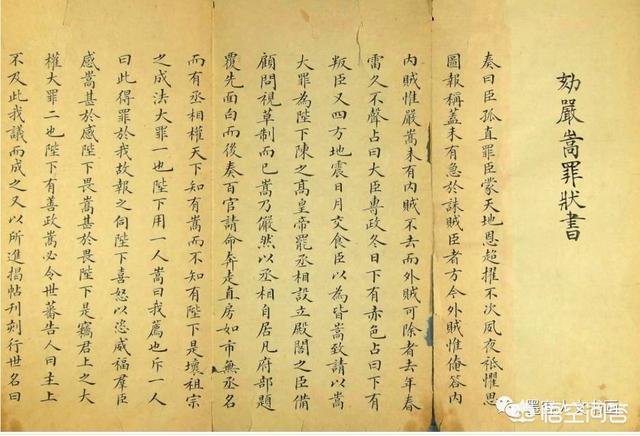 劾嚴嵩罪狀書
奏曰臣孤直罪臣蒙天地恩超擢不次夙夜祗懼思
圖報稱蓋未有急於誅賊臣者方今外賊惟俺答內
內賊惟嚴嵩未有內賊不去而外賊可除者去年春
雷久不聲占曰大臣專政冬日下有赤色占曰下有
叛臣又四方地震日月交食臣以為皆嵩致請以嵩
大罪為陛下陳之高皇帝罷丞相設立殿閣之臣備
顧問視草制而已嵩乃儼然以丞相自居凡府部題
覆先面白而後奏百官請命奔走直房如市無丞名
而有丞相權天下知有嵩而不知有陛下是壞祖宗
之成法大罪一也陛下用一人嵩曰我薦也斥一人
曰此得罪於我故報之伺陛下喜怒以恣威福群臣
感嵩甚於感陛下畏嵩甚於畏陛下是竊君上之大
權大罪二也陛下有善政嵩必令世蕃告人曰主上
不及此我議而成之又以所進揭帖刊刻行世名曰
悟空问答